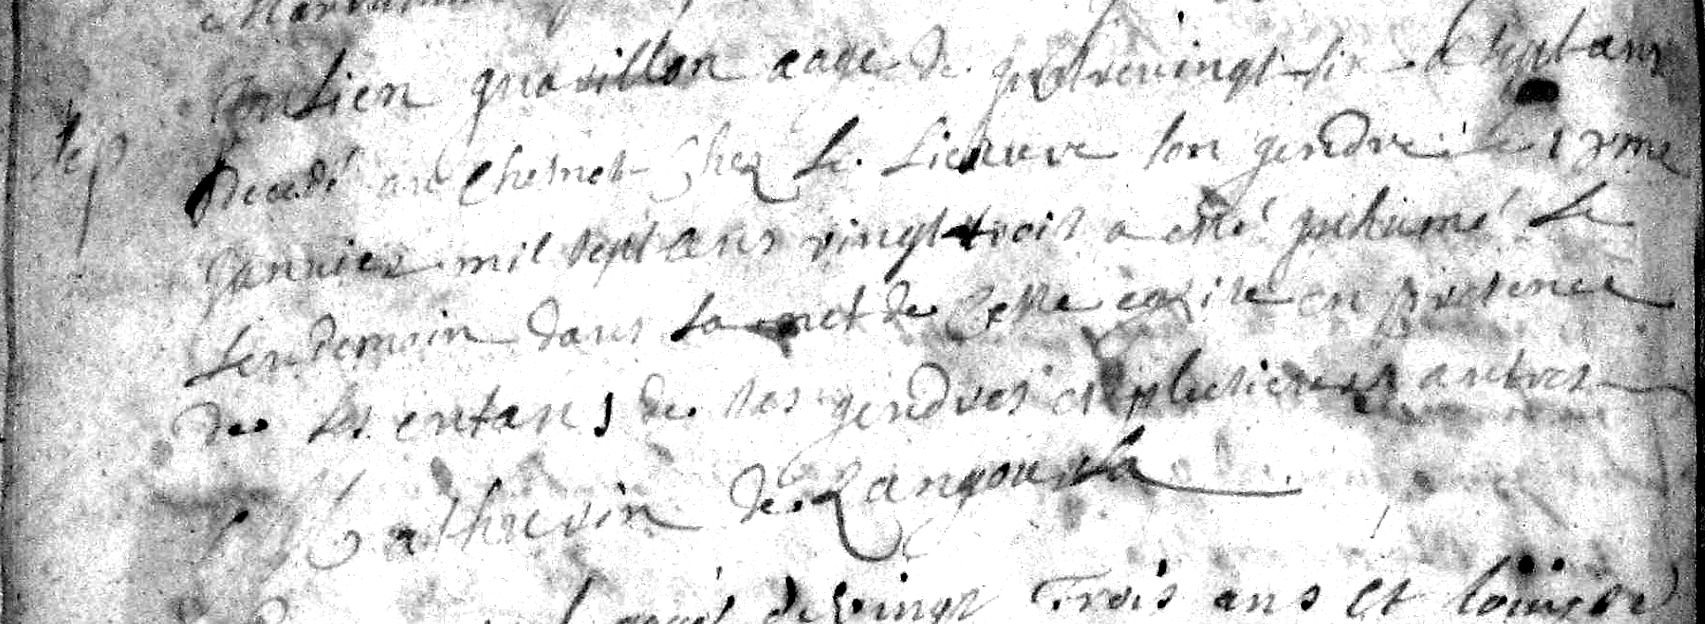 Julien quarillon aage de quatrevingt six a sept ans
Sep
decedé au Chesnot Chez Le Lieuvre son gendre le
janvier mil sept ans vingt trois a été inhumé Le
Lendemain dans La nef de Cette eglise en presence
de ses enfans de ses gendres et plusieurs autres
Mathurin de Langourla
de vingt Trois ans et